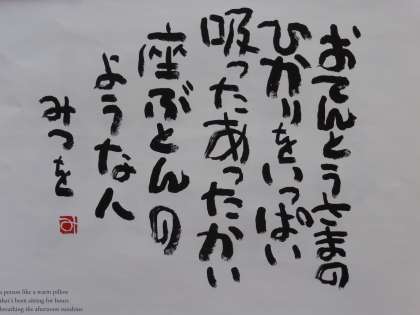 おてんとうさまの
ひかりをいっぱい
吸ったあったかい
座ぶとんの
ような人
みつを
a person like a warm pillow
that's been sitting for hours
breathing the afternoon sunshine